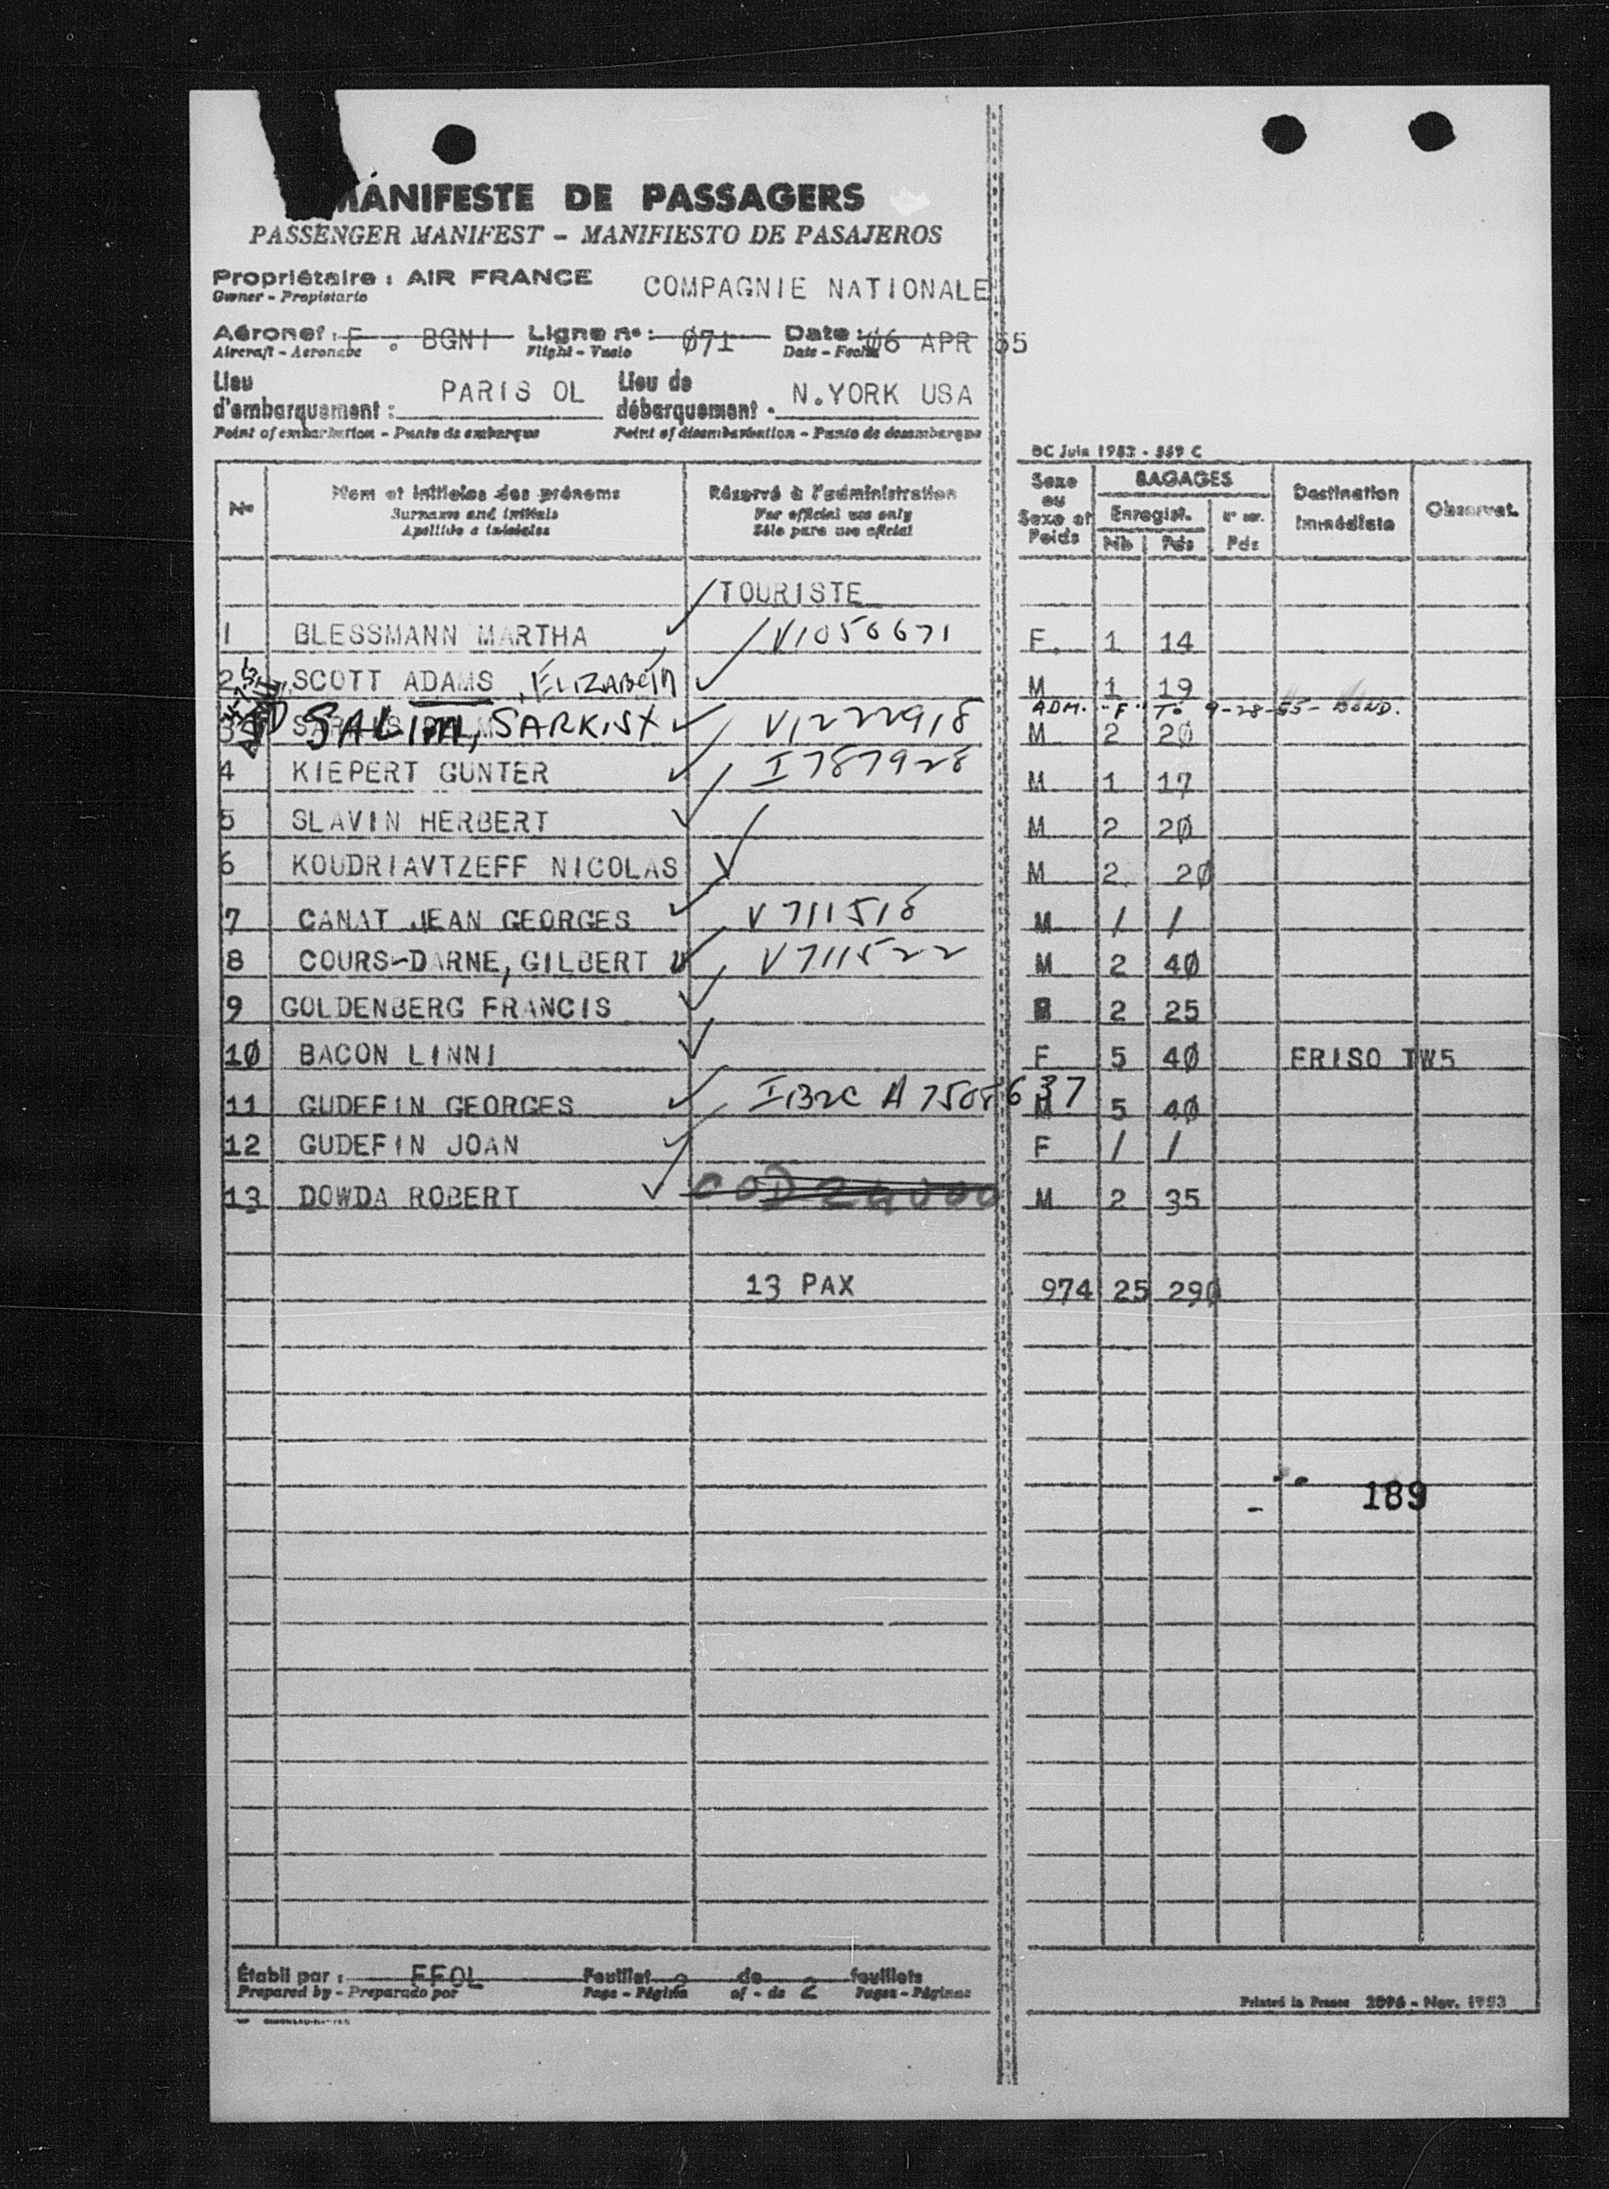 MANIFESTE DE PASSAGERS
PASSENGER MANIFEST - MANIFIESTO DE PASAJEROS
Propriétaire : AIR FRANCE COMPAGNIE NATIONALE
Owner - Propietario
Aéronef : F . BGNI Ligne n° : Ø71 Date : Ø6 APR 55
Aircraft - Aeronabe Flight - Vuelo Date - Fecha
Lieu d'embarquement : PARIS OL Lieu de débarquement . N.YORK USA
Point of embarkation - Punto de embarque Point of disembarkation - Punto de desembarque
BC Juin 1952 - 569 C
N° Nom et initiales des prénoms Réservé à l'administration Sexe ou Sexe et Poids BAGAGES Destination immédiate Observat.
Surname and initials For official use only Enregist.
Apellido e iniciales Sólo para uso oficial Nb Pds Pds
TOURISTE
1 BLESSMANN MARTHA V1056671 F. 1 14
2 SCOTT ADAMS , ELIZABETH M 1 19
ADM. "F" TO 9-28-55 - BOND.
3 SALIM, SARKIS V1222918 M 2 2Ø
4 KIEPERT GUNTER I787928 M 1 17
5 SLAVIN HERBERT M 2 2Ø
6 KOUDRIAVTZEFF NICOLAS M 2 2Ø
7 CANAT JEAN GEORGES V711518 M / /
8 COURS-DARNE, GILBERT V711522 M 2 4Ø
9 GOLDENBERG FRANCIS 2 25
1Ø BACON LINNI F 5 4Ø ERISO TW5
11 GUDEFIN GEORGES I-132C A7505637 M 5 4Ø
12 GUDEFIN JOAN F / /
13 DOWDA ROBERT M 2 35
13 PAX 974 25 29Ø
189
Établi par : FFOL Feuillet 2 de 2 feuillets
Prepared by - Preparado por Page - Página of - de Pages - Páginas
Printed in France 2096 - Nov. 1953